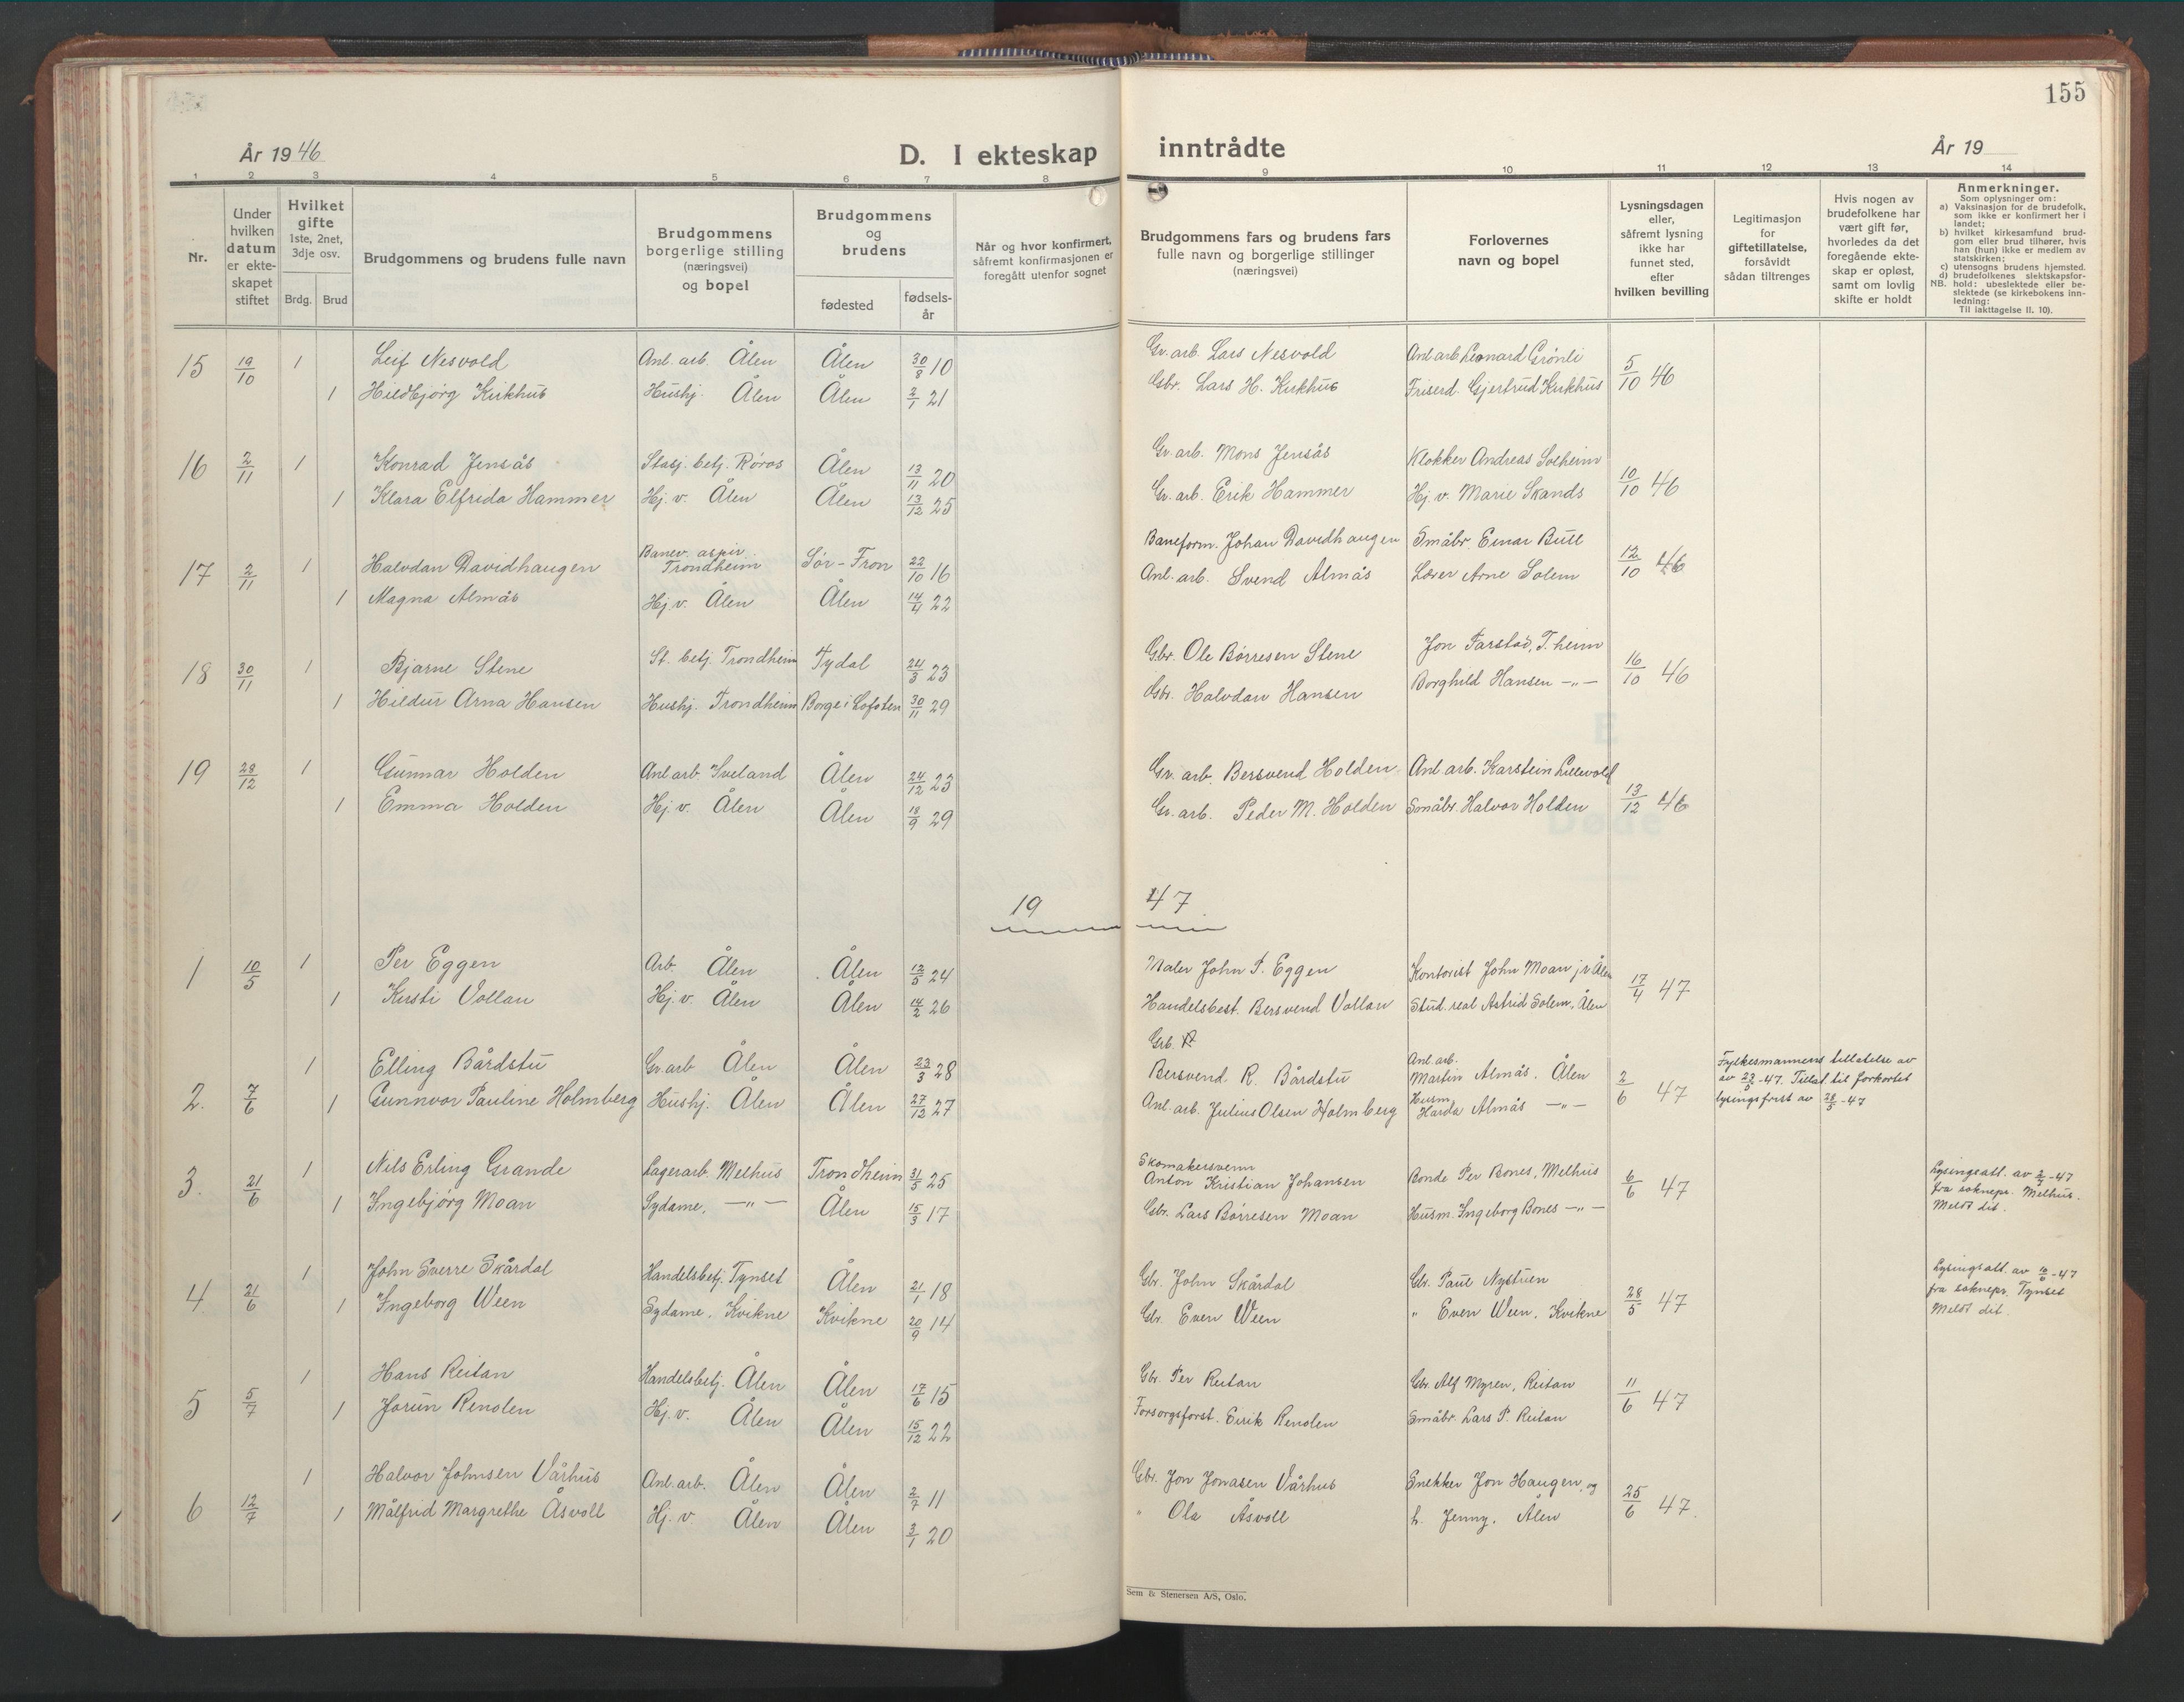 155
År 1946
D. I ekteskap inntrådte
År 19
1 2 3 4 5 6 7 8 9 10 11 12 13 14
Nr.
Under hvilken datum er ekteskapet stiftet
Hvilket gifte 1ste, 2net, 3dje osv.
Brdg. Brud
Brudgommens og brudens fulle navn
Brudgommens borgerlige stilling (næringsvei) og bopel
Brudgommens og brudens
fødested
fødsels-år
Når og hvor konfirmert, såfremt konfirmasjonen er foregått utenfor sognet
Brudgommens fars og brudens fars fulle navn og borgerlige stillinger (næringsvei)
Forlovernes navn og bopel
Lysningsdagen eller, såfremt lysning ikke har funnet sted, efter hvilken bevilling
Legitimasjon for giftetillatelse, forsåvidt sådan tiltrenges
Hvis nogen av brudefolkene har vært gift før, hvorledes da det foregående ekteskap er opløst, samt om lovlig skifte er holdt
Anmerkninger.
Som oplysninger om:
a) Vaksinasjon for de brudefolk, som ikke er konfirmert her i landet;
b) hvilket kirkesamfund brudgom eller brud tilhører, hvis han (hun) ikke er medlem av statskirken;
c) utensogns brudens hjemsted.
d) brudefolkenes slektskapsforhold: ubeslektede eller beslektede (se kirkebokens innledning:
NB.
Til iakttagelse II. 10).
15 19/10 1 Leif Nesvold Anl. arb. Ålen Ålen 30/8 10 Gr. arb. Lars Nesvold Anl. arb. Leonard Grønli 5/10 46
1 Hildbjørg Kirkhus Hushj. Ålen Ålen 2/1 21 Gbr. Lars H. Kirkhus Friserd. Gjertrud Kirkhus
16 2/11 1 Konrad Jensås Stasj. betj. Røros Ålen 13/11 20 Gr. arb. Mons Jensås Klokker Andreas Solheim 10/10 46
1 Klara Elfrida Hammer Hj. v. Ålen Ålen 13/12 25 Gr. arb. Erik Hammer Hj. v. Marie Skands
17 2/11 1 Halvdan Davidhaugen Banev. aspir. Trondheim Sør-Fron 22/10 16 Baneform. Johan Davidhaugen Småbr. Einar Bull 12/10 46
1 Magna Almås Hj. v. Ålen Ålen 14/4 22 Anl. arb. Svend Almås Lærer Arne Solem
18 30/11 1 Bjarne Stene St. betj. Trondheim Tydal 24/3 23 Gbr. Ole Børresen Stene Jon Farstad, T.heim 16/10 46
1 Hildur Arna Hansen Hushj. Trondheim Borge i Lofoten 30/11 29 Gbr. Halvdan Hansen Borghild Hansen —"—
19 28/12 1 Gunnar Holden Anl. arb. Ålen 24/12 23 Gr. arb. Bersvend Holden Anl. arb. Karstein Lillevold 13/12 46
1 Emma Holden Hj. v. Ålen Ålen 18/9 29 Gr. arb. Peder M. Holden Småbr. Halvor Holden
19 47
1 10/5 1 Per Eggen Arb. Ålen Ålen 12/5 24 Maler John P. Eggen Kontorist John Moan jr Ålen 17/4 47
1 Kirsti Vollan Hj. v. Ålen Ålen 14/2 26 Handelsbest. Bersvend Vollan Stud. real Astrid Solem, Ålen
2. 7/6 1 Elling Bårdstu Gr. arb Ålen Ålen 23/3 28 Grb. Bersvend R. Bårdstu Anl. arb. Martin Almås. Ålen 2/6 47 Fylkesmannens tilletelse av av 23/5-47. Tillat. til forkortet lysingsfrist av 28/5-47
1 Gunnvor Pauline Holmberg Hushj. Ålen Ålen 27/12 27 Anl. arb. Julius Olsen Holmberg Husm. Harda Almås —"—
3. 21/6 1 Nils Erling Grande Lagerarb. Melhus Trondheim 31/5 25 Skomakersvenn Anton Kristian Johansen Bonde Per Bones, Melhus 6/6 47 Lysingsatt. av -47 fra soknepr. Melhus. Meldt dit.
1 Ingebjørg Moan Sydame, —"— Ålen 15/3 17 Gbr. Lars Børresen Moan Husm. Ingeborg Bones —"—
4 21/6 1 John Sverre Skårdal Handelsbetj. Tynset Ålen 21/1 18 Gbr. John Skårdal Gbr. Paul Nystuen 28/5 47 Lysingsatt. av -47 fra soknepr. Tynset Meldt dit.
1 Ingeborg Ween Sydame, Kvikne Kvikne 20/9 14 Gbr. Even Ween " Even Ween, Kvikne
5 5/7 1 Hans Reitan Handelsbetj. Ålen Ålen 17/6 15 Gbr. Per Reitan Gbr. Alf Myren, Reitan 11/6 47
1 Jorun Renolen Hj. v. Ålen Ålen 15/12 22 Forsorgsforst. Eirik Renolen Småbr. Lars P. Reitan
6 12/7 1 Halvor Johnsen Vårhus Anl. arb. Ålen Ålen 2/7 11 Gbr. Jon Jonasen Vårhus Snekker Jon Haugen, og 25/6 47.
1 Målfrid Margrethe Åsvoll Hj. v. Ålen Ålen 3/1 20 " Ola Åsvoll h. Jenny, Ålen
Sem & Stenersen A/S, Oslo.